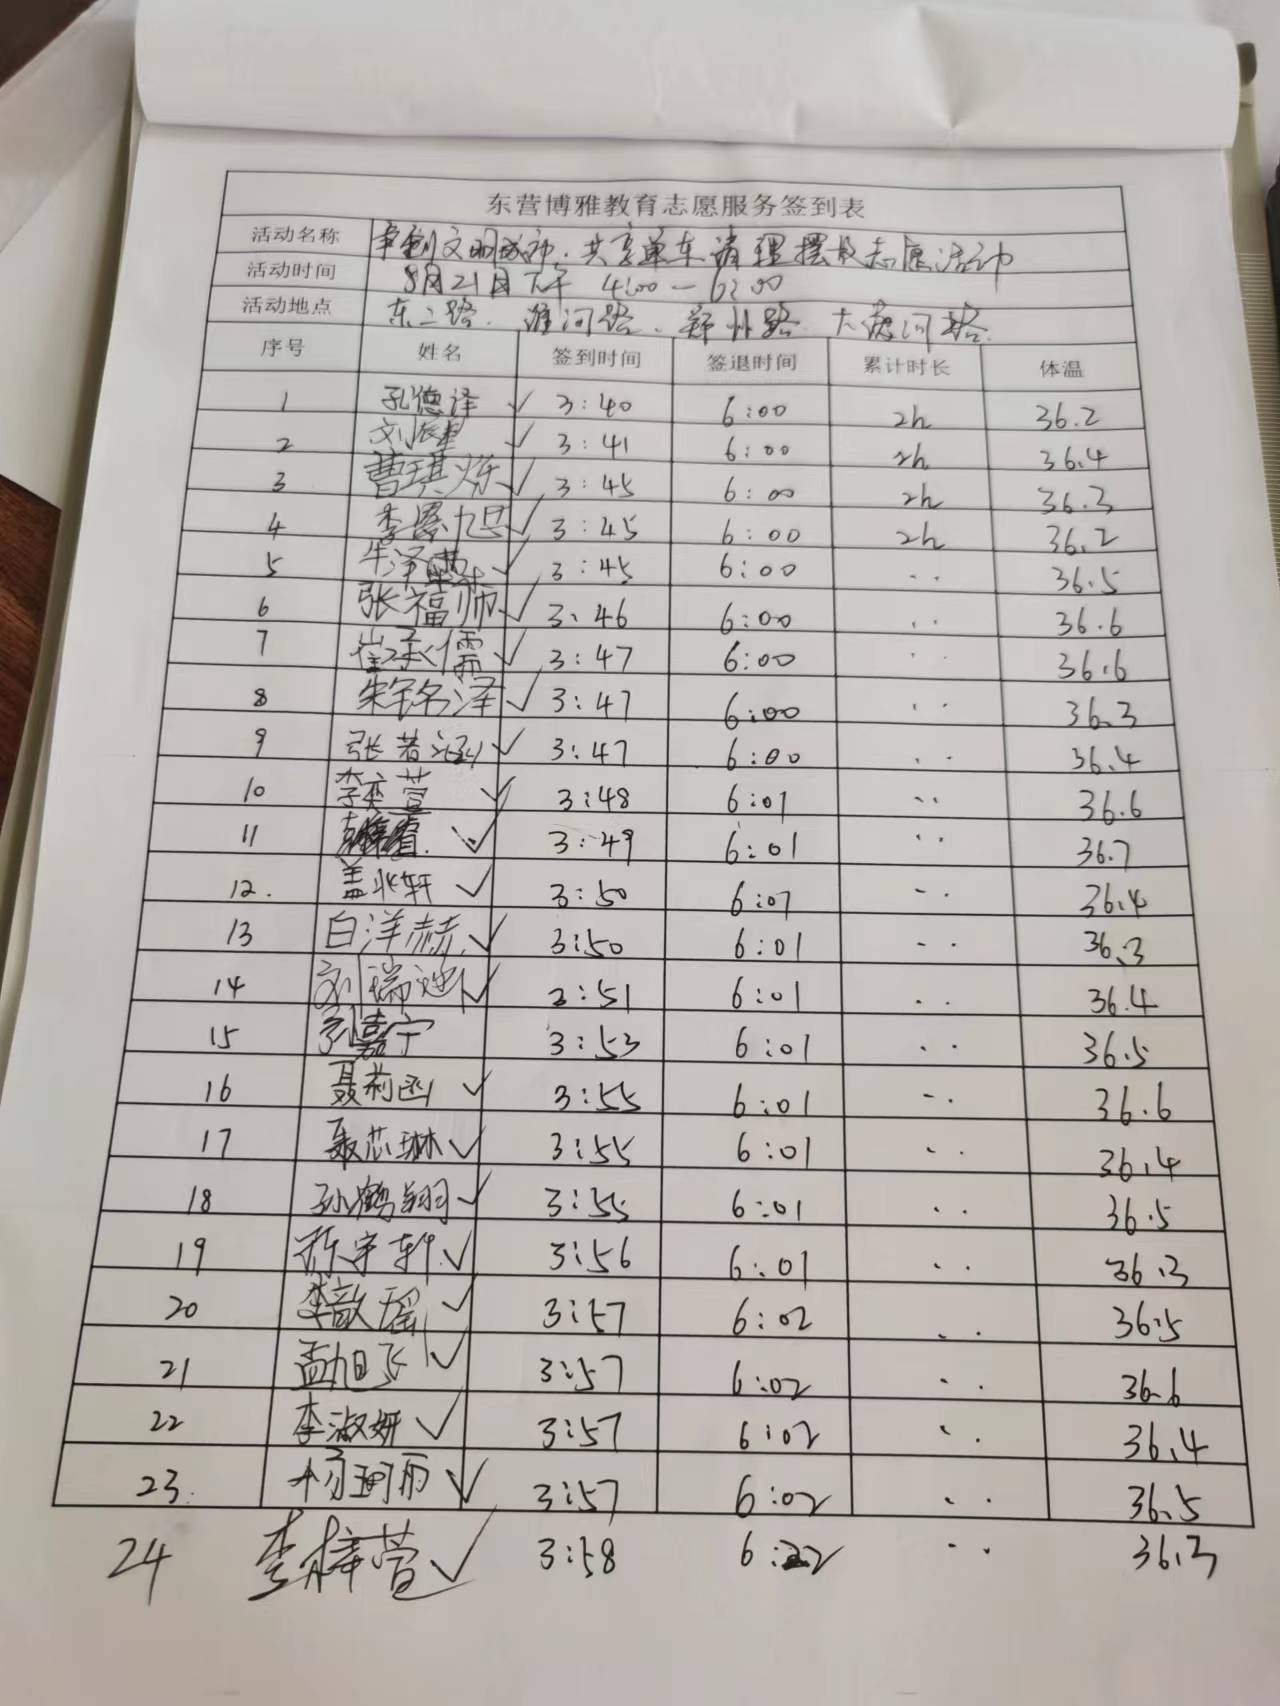 东营博雅教育志愿服务签到表
活动名称 争创文明城市.共享单车清理摆放志愿活动
活动时间 8月21日下午 4:00-6:00
活动地点 东二路. 淮河路、郑州路. 大渡河路.
序号 姓名 签到时间 签退时间 累计时长 体温
1 孔德泽 ✓ 3:40 6:00 2h 36.2
2 ✓ 3:41 6:00 2h 36.4
3 曹琪烁 ✓ 3:45 6:00 2h 36.3
4 ✓ 3:45 6:00 2h 36.2
5 ✓ 3:45 6:00 .. 36.5
6 张福帅 ✓ 3:46 6:00 .. 36.6
7 崔承儒 ✓ 3:47 6:00 .. 36.6
8 朱铭泽 ✓ 3:47 6:00 .. 36.3
9 张若涵 ✓ 3:47 6:00 .. 36.4
10 李奕萱 ✓ 3:48 6:01 .. 36.6
11 ✓ 3:49 6:01 .. 36.7
12. 盖兆轩 ✓ 3:50 6:01 .. 36.4
13 白洋赫 ✓ 3:50 6:01 .. 36.3
14 刘瑞迪 ✓ 3:51 6:01 .. 36.4
15 嘉宁 3:53 6:01 .. 36.5
16 聂莉函 ✓ 3:55 6:01 .. 36.6
17 聂芯琳 ✓ 3:55 6:01 .. 36.4
18 孙鹤翔 ✓ 3:55 6:01 .. 36.5
19 陈宇轩 ✓ 3:56 6:01 .. 36.3
20 李歆瑶 ✓ 3:57 6:02 .. 36.5
21 孟旭飞 ✓ 3:57 6:02 .. 36.6
22 李淑妍 ✓ 3:57 6:02 .. 36.4
23. 杨珂丽 ✓ 3:57 6:02 .. 36.5
24 李梓萱 ✓ 3:58 6:22 .. 36.3